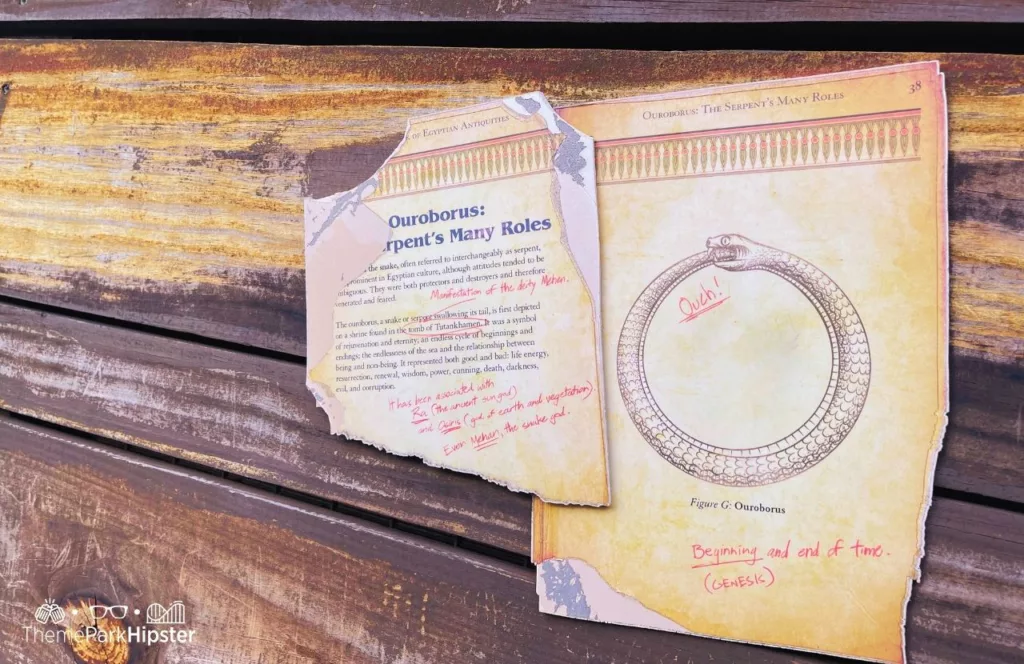 OF EGYPTIAN ANTIQUITIES
Ouroborus:
erpent's Many Roles
the snake, often referred to interchangeably as serpent,
prominent in Egyptian culture, although attitudes tended to be
mbiguous. They were both protectors and destroyers and therefore
venerated and feared.
Manifestation of the deity Mehen.
The ouroborus, a snake or serpent swallowing its tail, is first depicted
on a shrine found in the tomb of Tutankhamen. It was a symbol
of rejuvenation and eternity, an endless cycle of beginnings and
endings; the endlessness of the sea and the relationship between
being and non-being. It represented both good and bad: life energy,
resurrection, renewal, wisdom, power, cunning, death, darkness,
evil, and corruption.
It has been associated with
Ra (the ancient sun god)
and Osiris (god of earth and vegetation)
Even Mehen, the snake god.
OUROBORUS: THE SERPENT'S MANY ROLES
38
Ouch!
Figure G: Ouroborus
Beginning and end of time.
(GENESIS)
ThemeParkHipster